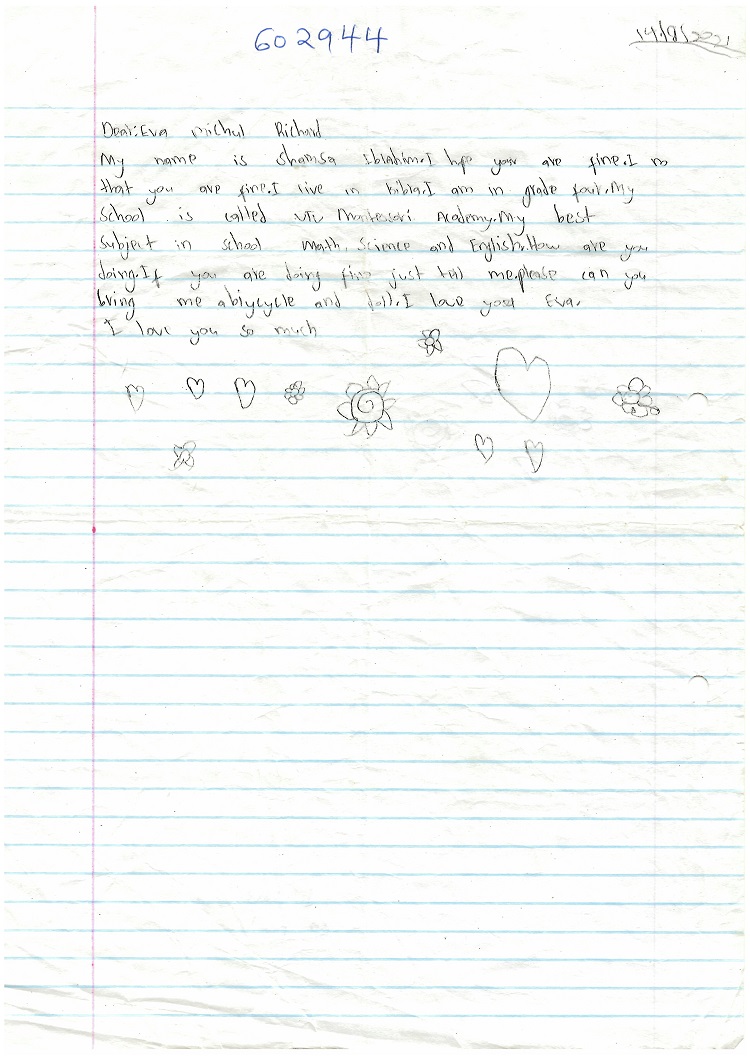 602944
14/9/2021
Dear:Eva michul Richard
My name is Shamsa Ibrahim.I hpe you are fine.I
that you are fine.I live in kibra.I am in grade four.My
School is called Montessori Academy.My best
Subject in school Math, Science and English.How are you
doing.If you are doing fine just tell me.please can you
bring me abiycycle and doll.I love you Eva.
I love you so much